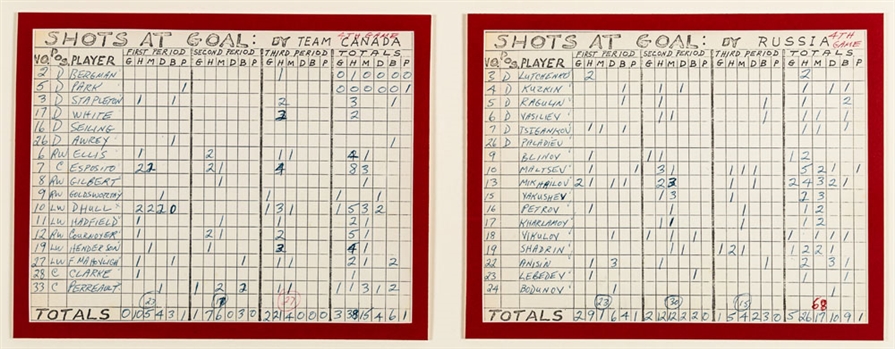 SHOTS AT GOAL: BY TEAM CANADA
4TH GAME
FIRST PERIOD SECOND PERIOD THIRD PERIOD TOTALS
NO. POS. PLAYER G H M D B P G H M D B P G H M D B P G H M D B P
2 D BERGMAN 1 0 1 0 0 0 0
5 D PARK 1 0 0 0 0 0 1
3 D STAPLETON 1 1 2 3 1
17 D WHITE 3 2
16 D SEILING
26 D AWREY 1 1
6 RW ELLIS 1 2 1 1 4 1
7 C ESPOSITO 2 2 2 1 4 8 3
8 RW GILBERT 1 1
9 RW GOLDSWORTHY 1 1 1
10 LW D HULL 2 2 2 0 1 3 1 1 5 3 2
11 LW HADFIELD 1 1 2 1
12 RW COURNOYER 1 2 1 2 5 1
19 LW HENDERSON 1 1 3 4 1
27 LW F. MAHOVLICH 1 1 1 1 2 1 2
28 C CLARKE 1 1
33 C PERREAULT 1 1 2 2 1 1 1 3 1 2
23 27
TOTALS 0 10 5 4 3 1 1 7 6 0 3 0 2 21 4 0 0 0 3 38 15 4 6 1
SHOTS AT GOAL: BY RUSSIA
4TH GAME
FIRST PERIOD SECOND PERIOD THIRD PERIOD TOTALS
NO. POS. PLAYER G H M D B P G H M D B P G H M D B P G H M D B P
3 D LUTCHENKO 2 2
4 D KUZKIN 1 1 1 1 1 1
5 D RAGULIN 1 1 1 1 2
6 D VASILIEV 1 1 1 1 1
7 D TSIGANKOV 1 1 1 1 1 1 1
26 D PALADIEV
9 BLINOV 1 1 1 1 2
10 MALTSEV 1 1 3 1 1 1 1 5 2 1 1
13 MIKHAILOV 2 1 1 1 2 3 1 1 1 2 4 3 2 1
15 YAKUSHEV 1 1 3 1 2 3
16 PETROV 1 1 1 1 2
17 KHARLAMOV 1 1 1 1 2
18 VIKULOV 1 1 1 1 1 1 1 1 1
19 SHADRIN 1 1 1 2 1 1 2 2 1
22 ANISIN 1 3 1 1 1 2 3 1
23 LEBEDEV 1 1 1 1
24 BODUNOV 1 1 2
23 30 15 68
TOTALS 2 9 1 6 4 1 2 12 12 2 2 0 1 5 4 2 3 0 5 26 17 10 9 1